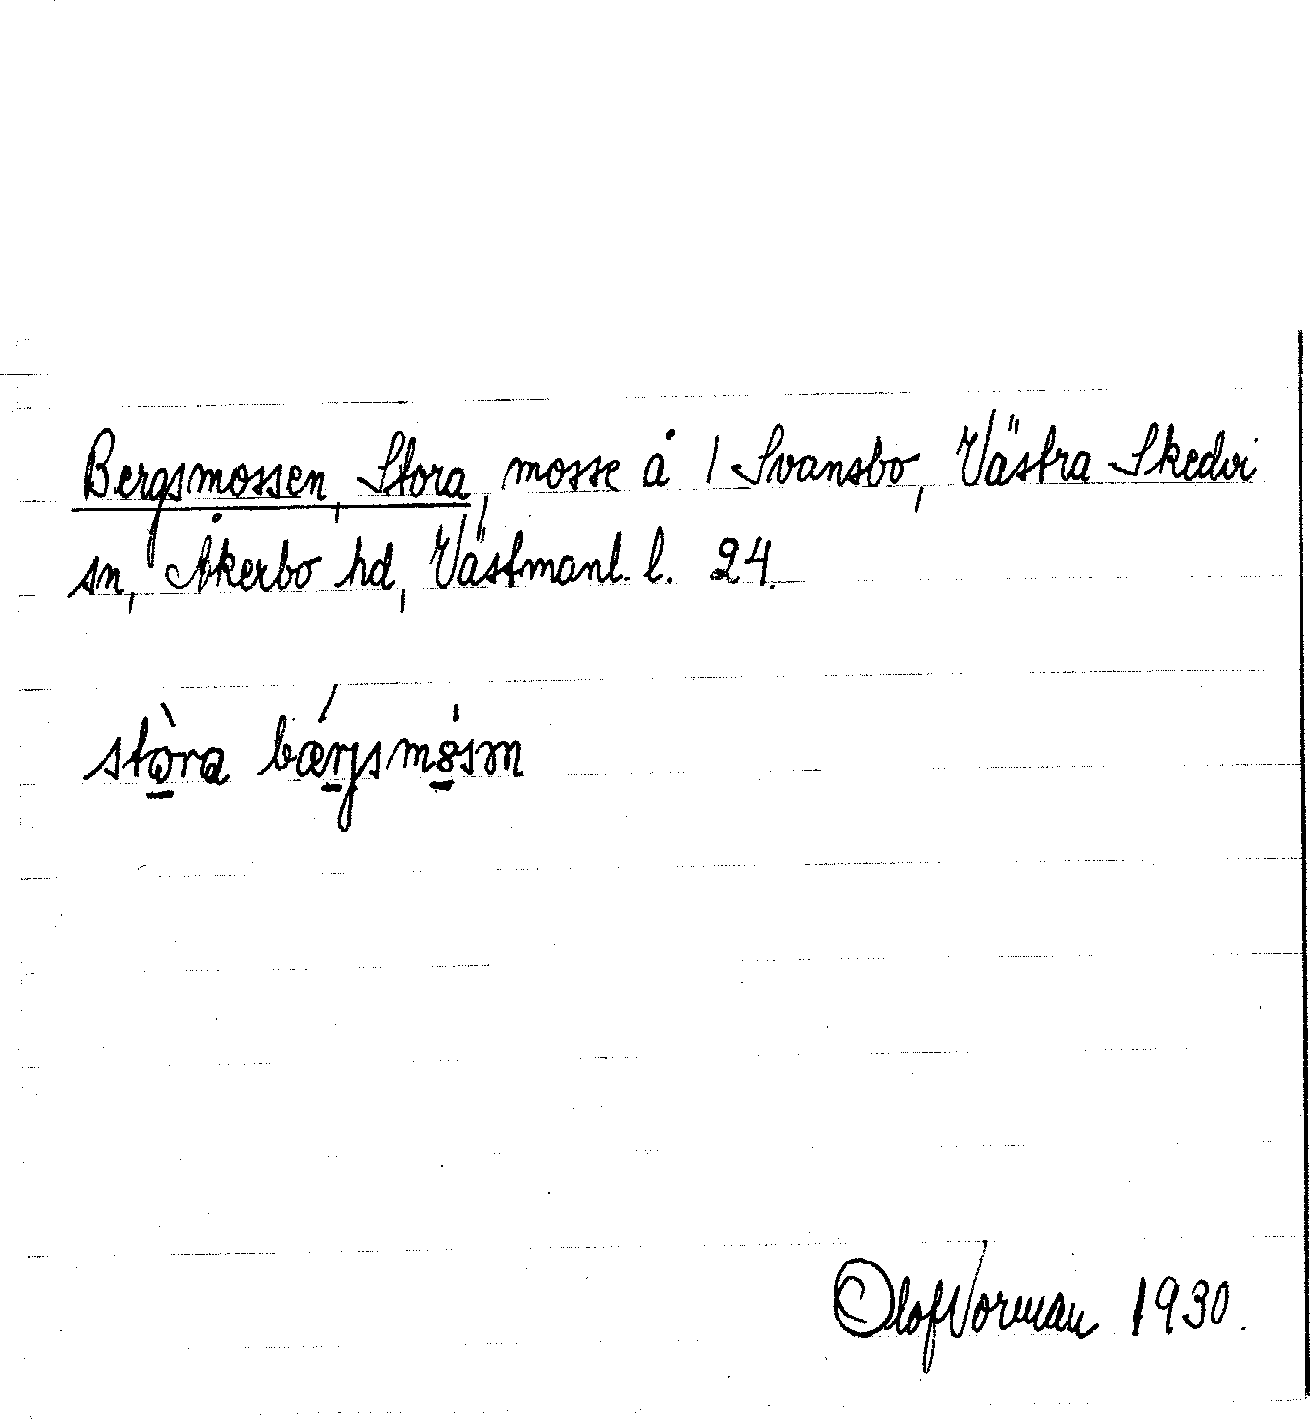 Bergsmossen, Stora, mosse å 1 Svansbo, Västra Skedvi
sn, Åkerbo hd, Västmanl. l. 24.
stòra
Olof Vorman 1930.